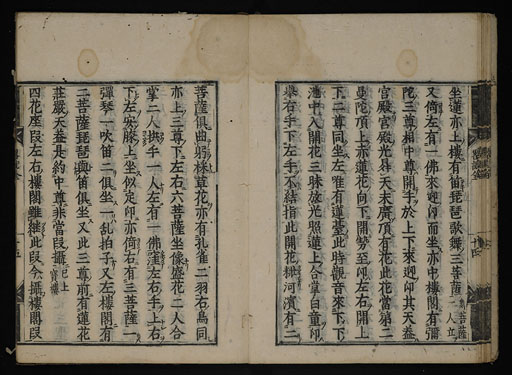 坐蓮亦上樓有笛琵琶歌舞三菩薩二菩薩一人立
又倚左有一佛來迎印而坐亦中樓閣有彌
陀三尊相中尊開手於上下來迎印其天蓋
宮殿宮殿光舛天末齊項有花此花當第二
曼陀頂上亦蓮花向下開勢至印左右開上
下二尊同坐左唯有蓮臺此時觀音來下下
池中入開花三昧放光照蓮上合掌白童印
舉右手下左手不結指此開花池河濱有二
菩薩俱曲躬採草花亦有孔雀二羽右鳥同
亦上三尊下左右六菩薩坐像盛花二人合
掌二人拱手一人左有一佛窪左右手上右
下左安膝上坐似定印亦倚右有三菩薩一
彈琴一吹笛二俱坐一乱拍子又左樓閣有
二菩薩琵琶與笛俱坐又此三尊前有蓮花
莊嚴天蓋是約中尊非當段攝已上寶樓
四花座段左右樓閣雖継此段今攝樓閣段